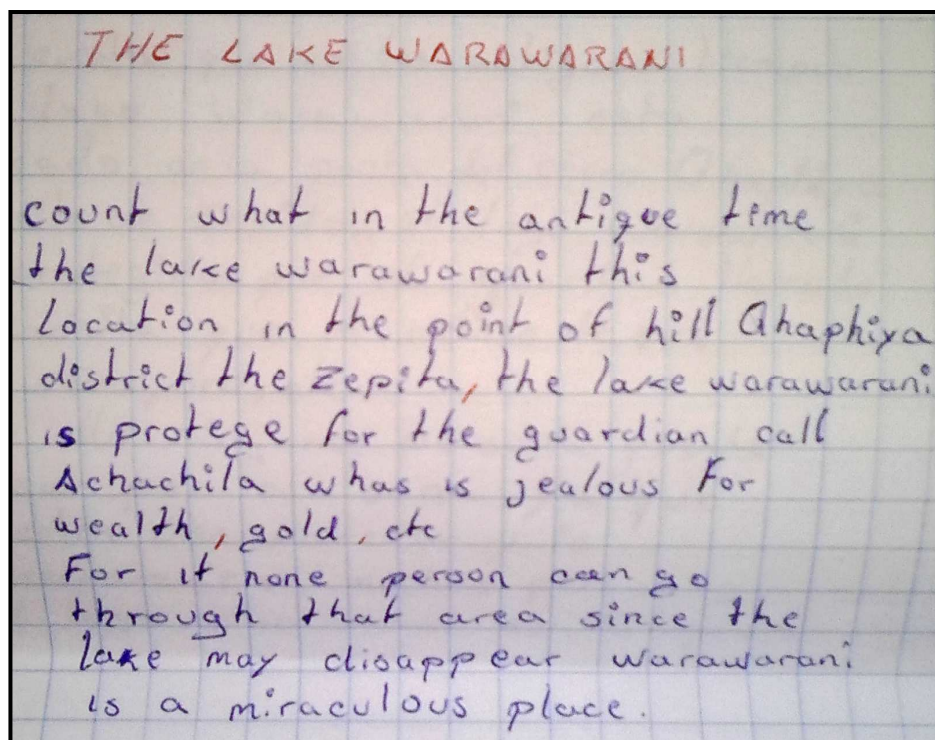 THE LAKE WARAWARANI
count what in the antique time
the lake warawarani this
Location in the point of hill Qhaphiya
district the Zepita, the lake warawarani
is protege for the guardian call
Achachila whas is jealous For
wealth, gold, etc
For it none person can go
through that area since the
lake may disappear warawarani
is a miraculous place.